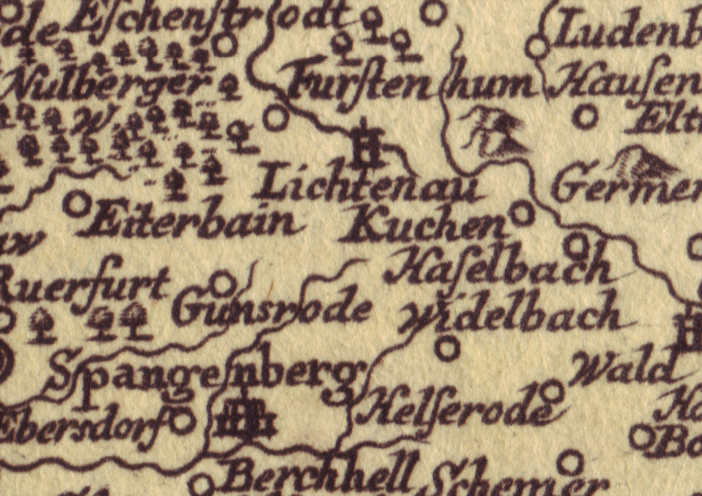 de Eschenstrodt
Ludenb
Nulberger Furstenhum Hausen
W Elt
Lichtenau Germer
Eiterbain Kuchen
aw Haselbach
Ruerfurt Gunsrode Widelbach
Spangenberg Wald
Ebersdorf Helserode Ha
Bo
Berchhell Schemer